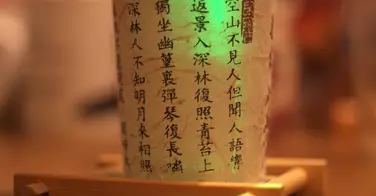 空山不見人但聞人語響
返景入深林復照青苔上
獨坐幽篁裏彈琴復長嘯
深林人不知明月來相照